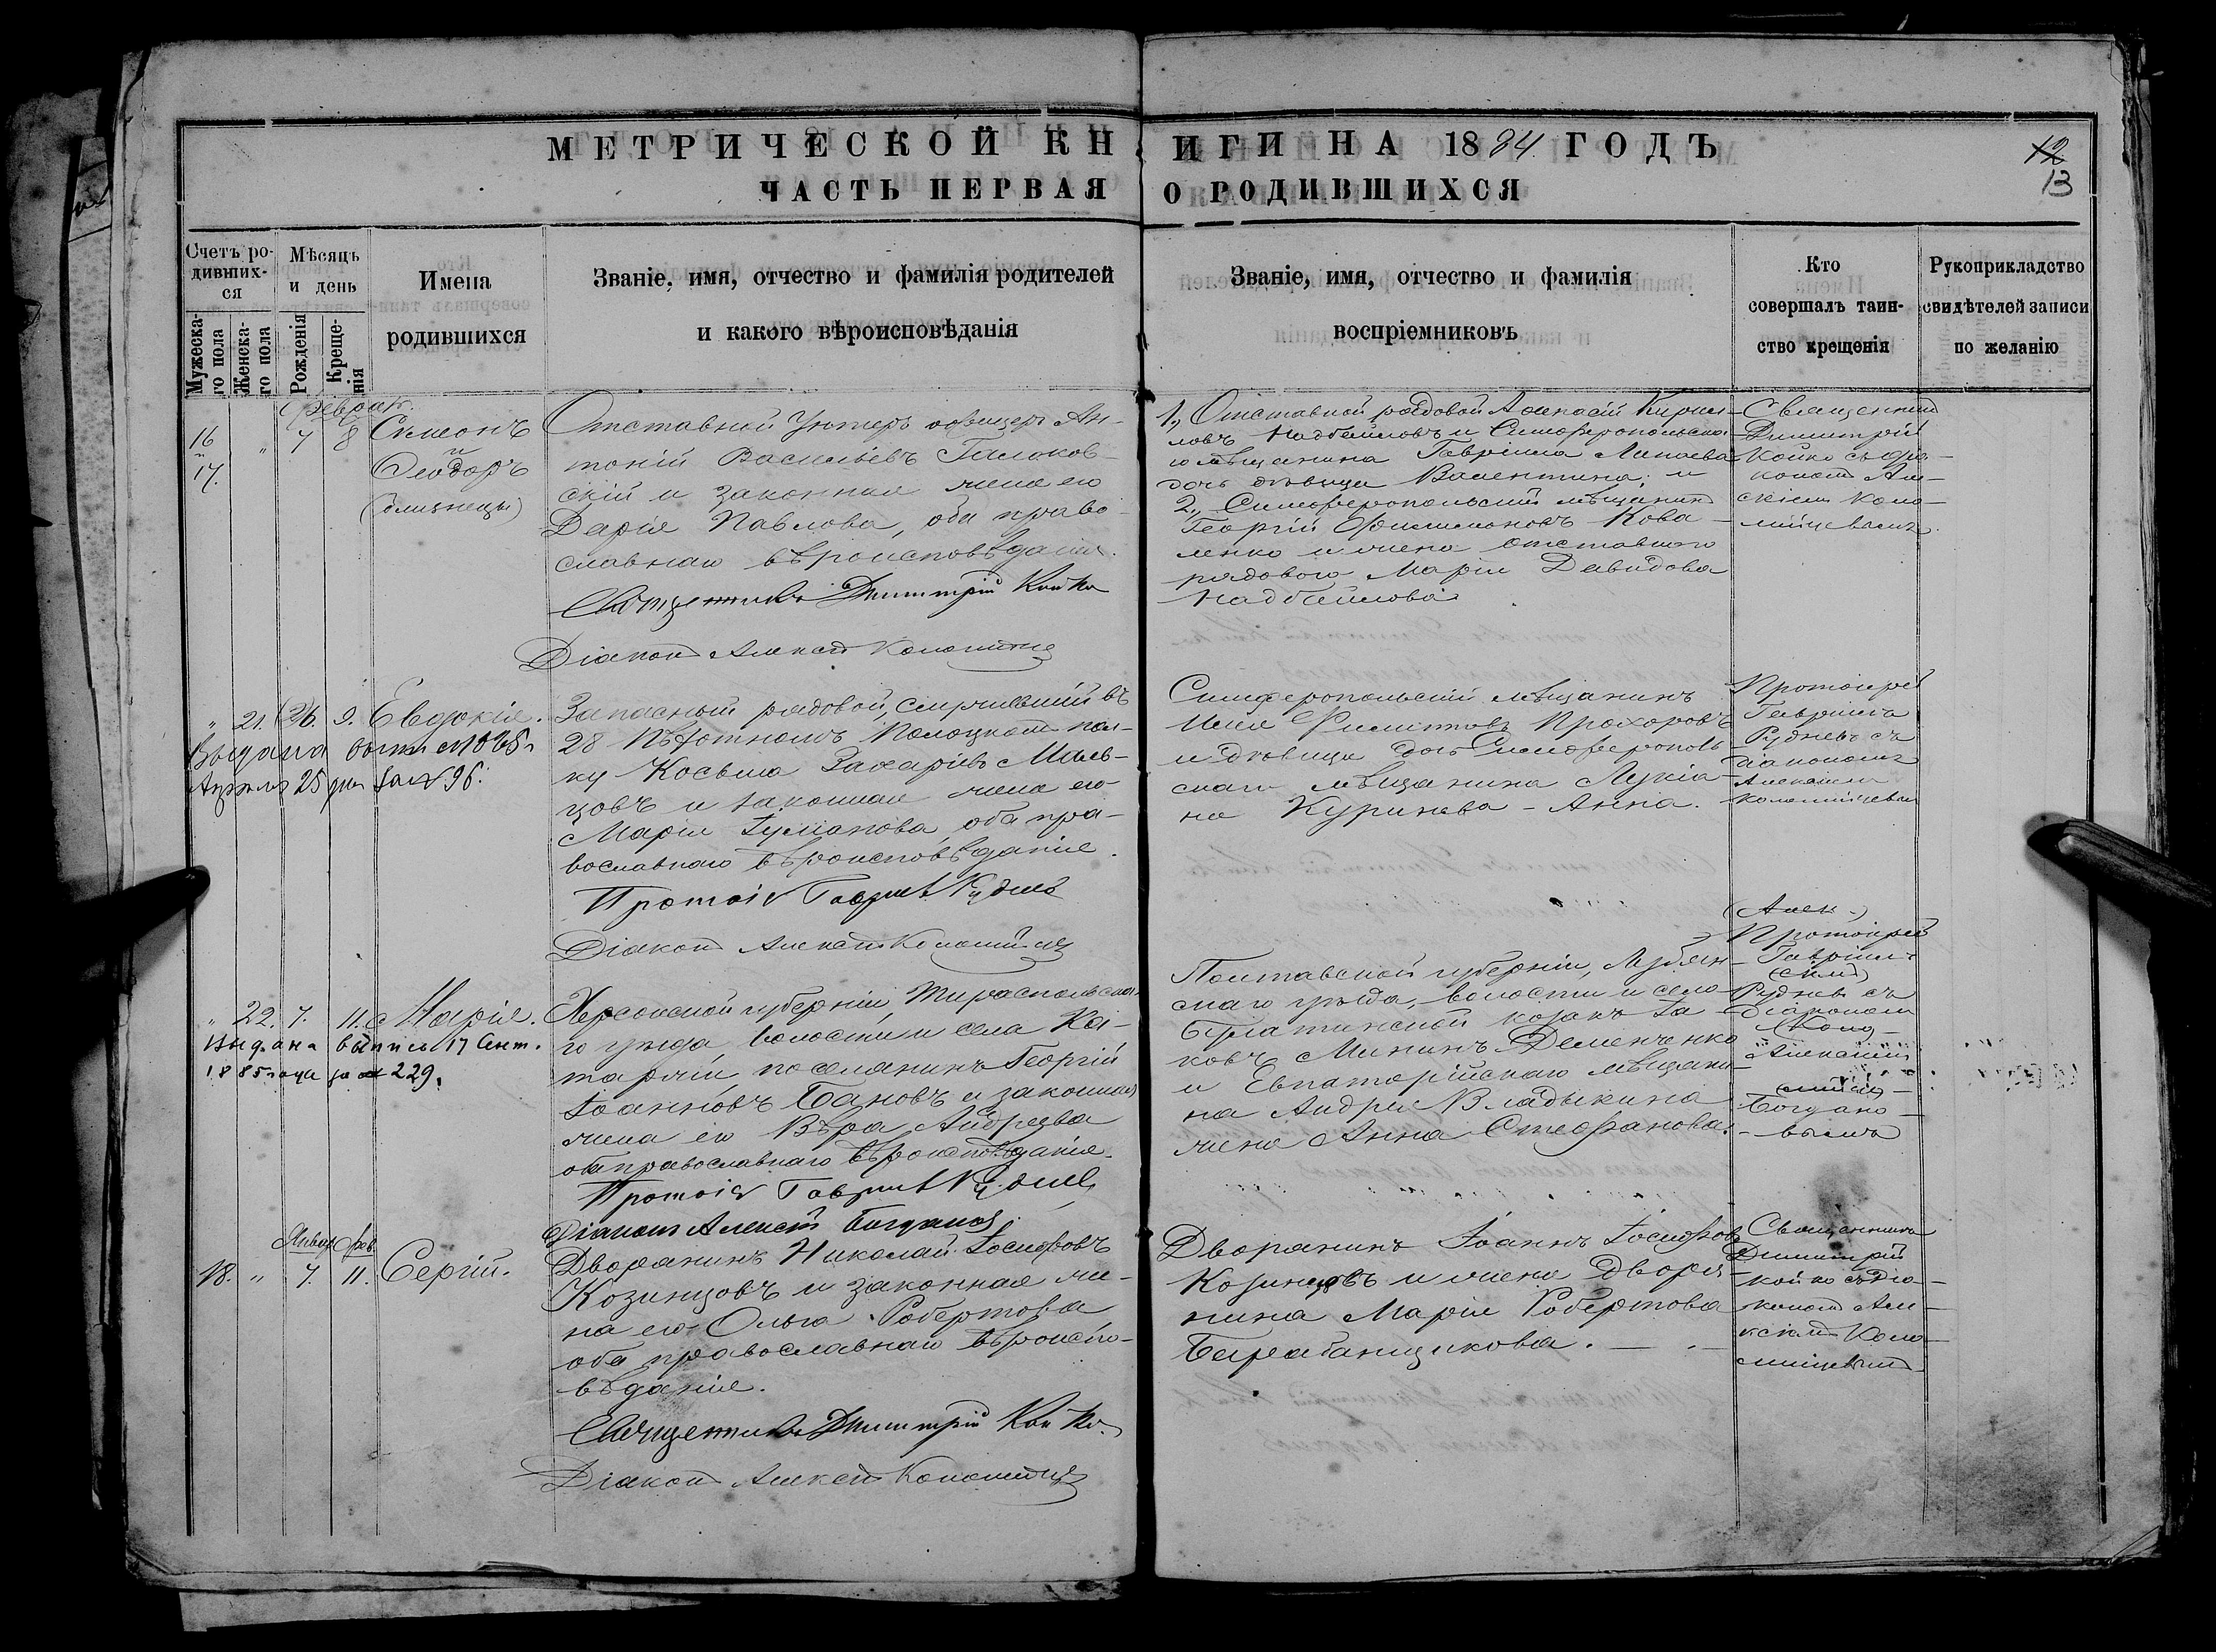 МЕТРИЧЕСКОЙ КНИГИ НА 1884 ГОДЪ
ЧАСТЬ ПЕРВАЯ О РОДИВШИХСЯ
12
13
Счетъ ро-
дивших-
ся
Мужеска-
го пола
Женска-
го пола
Мѣсяцъ
и день
Рожденія
Креще-
нія
Имена
родившихся
Званіе, имя, отчество и фамилія родителей
и какого вѣроисповѣданія
Званіе, имя, отчество и фамилія
воспріемниковъ
Кто
совершалъ таин-
ство крещенія
Рукоприкладство
свидѣтелей записи
по желанію
16
и
17.
"
Феврал.
7 8
Симеонъ
и
Ѳеодоръ
(близнецы)
Отставной Унтеръ офицеръ Ан-
тоній Васильевъ
скій и законная жена его
Дарія Павлова, оба право-
славнаго вѣроисповѣданія.
Священникъ Димитрій Койко
Діаконъ Алексій Коломійцевъ
1., Отставной рядовой Аѳанасій Кирил-
ловъ и Симферопольска-
го мѣщанина Гавріила
дочь дѣвица Валентина; и
2., Симферопольскій мѣщанинъ
Георгій Кова-
ленко и жена отставного
рядового Марія Давидова
Священникъ
Димитрій
Койко съ діа-
кономъ Але-
ксіемъ Коло-
мійцевымъ.
" 21. 26. 9. Евдокія.
Выдана
Апрѣля 25 дня за № 96.
Запасный рядовой, служившій въ
28 Пѣхотномъ Полоцкомъ пол-
ку Косьма Захаріевъ
цовъ и законная жена его
Марія оба пра-
вославнаго вѣроисповѣданія.
Протоіе Гавріилъ Рудневъ
Діаконъ Алексій Коломійцевъ
Симферопольскій мѣщанинъ
Илія Филипповъ Прохоровъ
и дѣвица дочь Симферополь-
скаго мѣщанина Лукіа-
на Куринева - Анна.
Протоіерей
Гавріилъ
Рудневъ съ
діакономъ
Алексіемъ
Коломійцевымъ
" 22. 7. 11. Марія.
Выдана выпись 17 Сент.
1885 года за № 229.
Херсонской губерніи, Тираспольска-
го уѣзда, волости и села Ка-
таржи, поселянинъ Георгій
Іоанновъ Бановъ и законная
жена его Вѣра Андреева
оба православнаго вѣроисповѣданія.
Протоіе Гавріилъ Рудневъ
Діаконъ Алексій Богдановъ
Полтавской губерніи, Лубен-
скаго уѣзда, волости и села
козакъ Іа-
ковъ Мининъ Деменченко
и Евпаторійскаго мѣщани-
на Андрея Владыкина
жена Анна Стефанова.
(Алек-)
Протоіерей
Гавріилъ
(сіемъ)
Рудневъ съ
Діакономъ
(Коло-
Алексіемъ
Богдано-
вымъ
Январ. Фев.
18. " 7. 11. Сергій.
Дворянинъ Николай Іосифовъ
Козинцовъ и законная же-
на его Ольга Робертова
оба православнаго вѣроиспо-
вѣданія.
Священникъ Димитрій Койко.
Діаконъ Алексій Коломійцевъ
Дворянинъ Іоаннъ Іосифовъ
Козинцовъ и жена Дворя-
нина Марія Робертова
Барабанщикова.
Священникъ
Димитрій
Койко съ діа-
кономъ Але-
ксіемъ Коло-
мійцевымъ